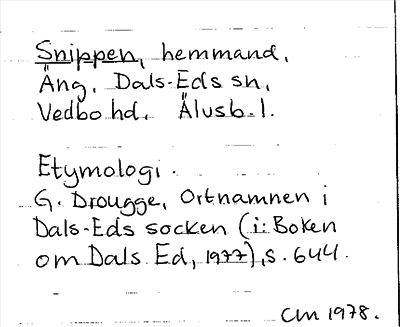 Snippen, hemmand,
Äng, Dals-Eds sn,
Vedbo hd, Älvsb. l.
Etymologi.
G. Drougge, Ortnamnen i
Dals-Eds socken (i: Boken
om Dals Ed, 1977), s. 644.
CLM 1978.